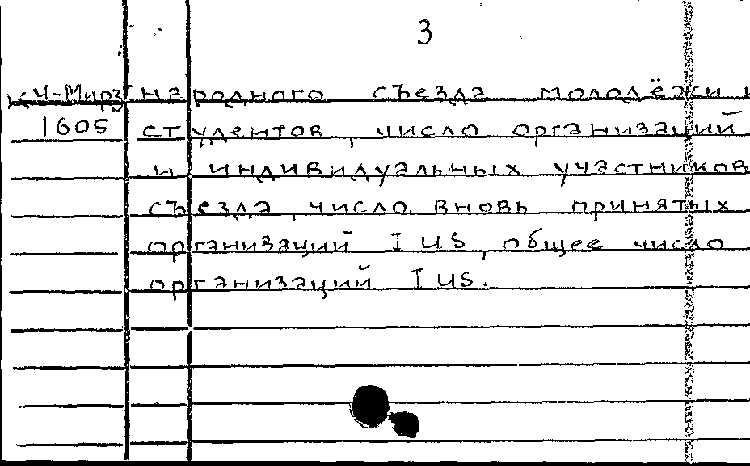 3
Ч-Мирз народного съезда молодёжи и
1605 студентов, число организаций
и индивидуальных участников
съезда, число вновь принятых
организаций IUS, общее число
организаций IUS.